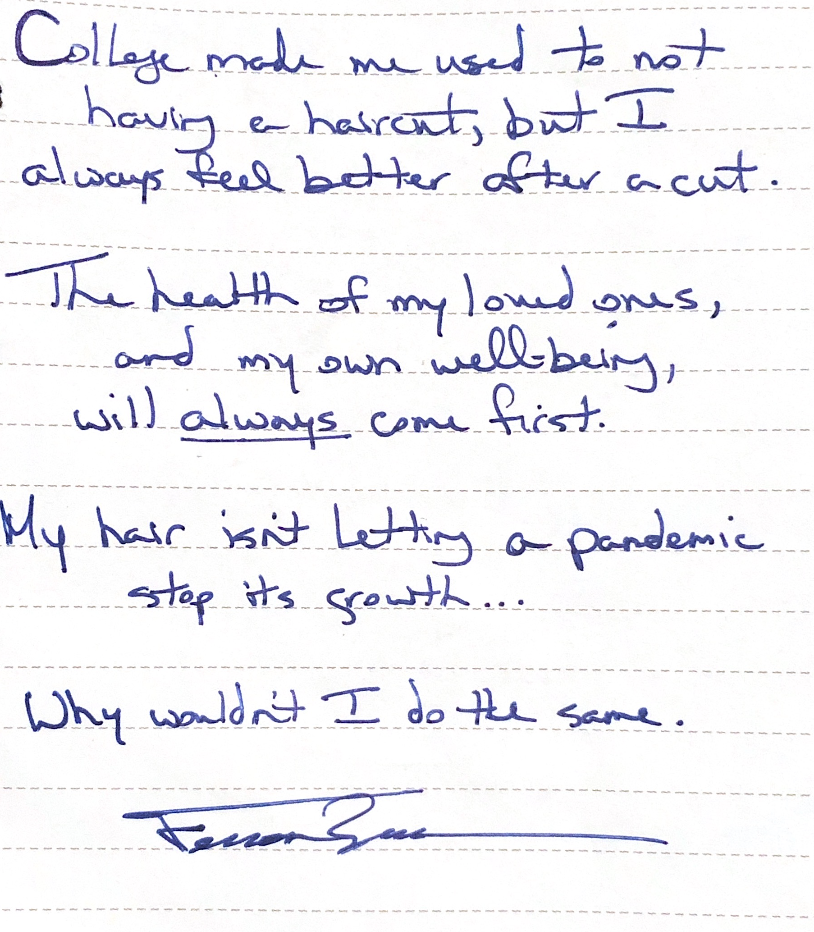 College made me used to not
having a haircut, but I
always feel better after a cut.
The health of my loved ones,
and my own well-being,
will always come first.
My hair isn't letting a pandemic
stop its growth...
Why wouldn't I do the same.